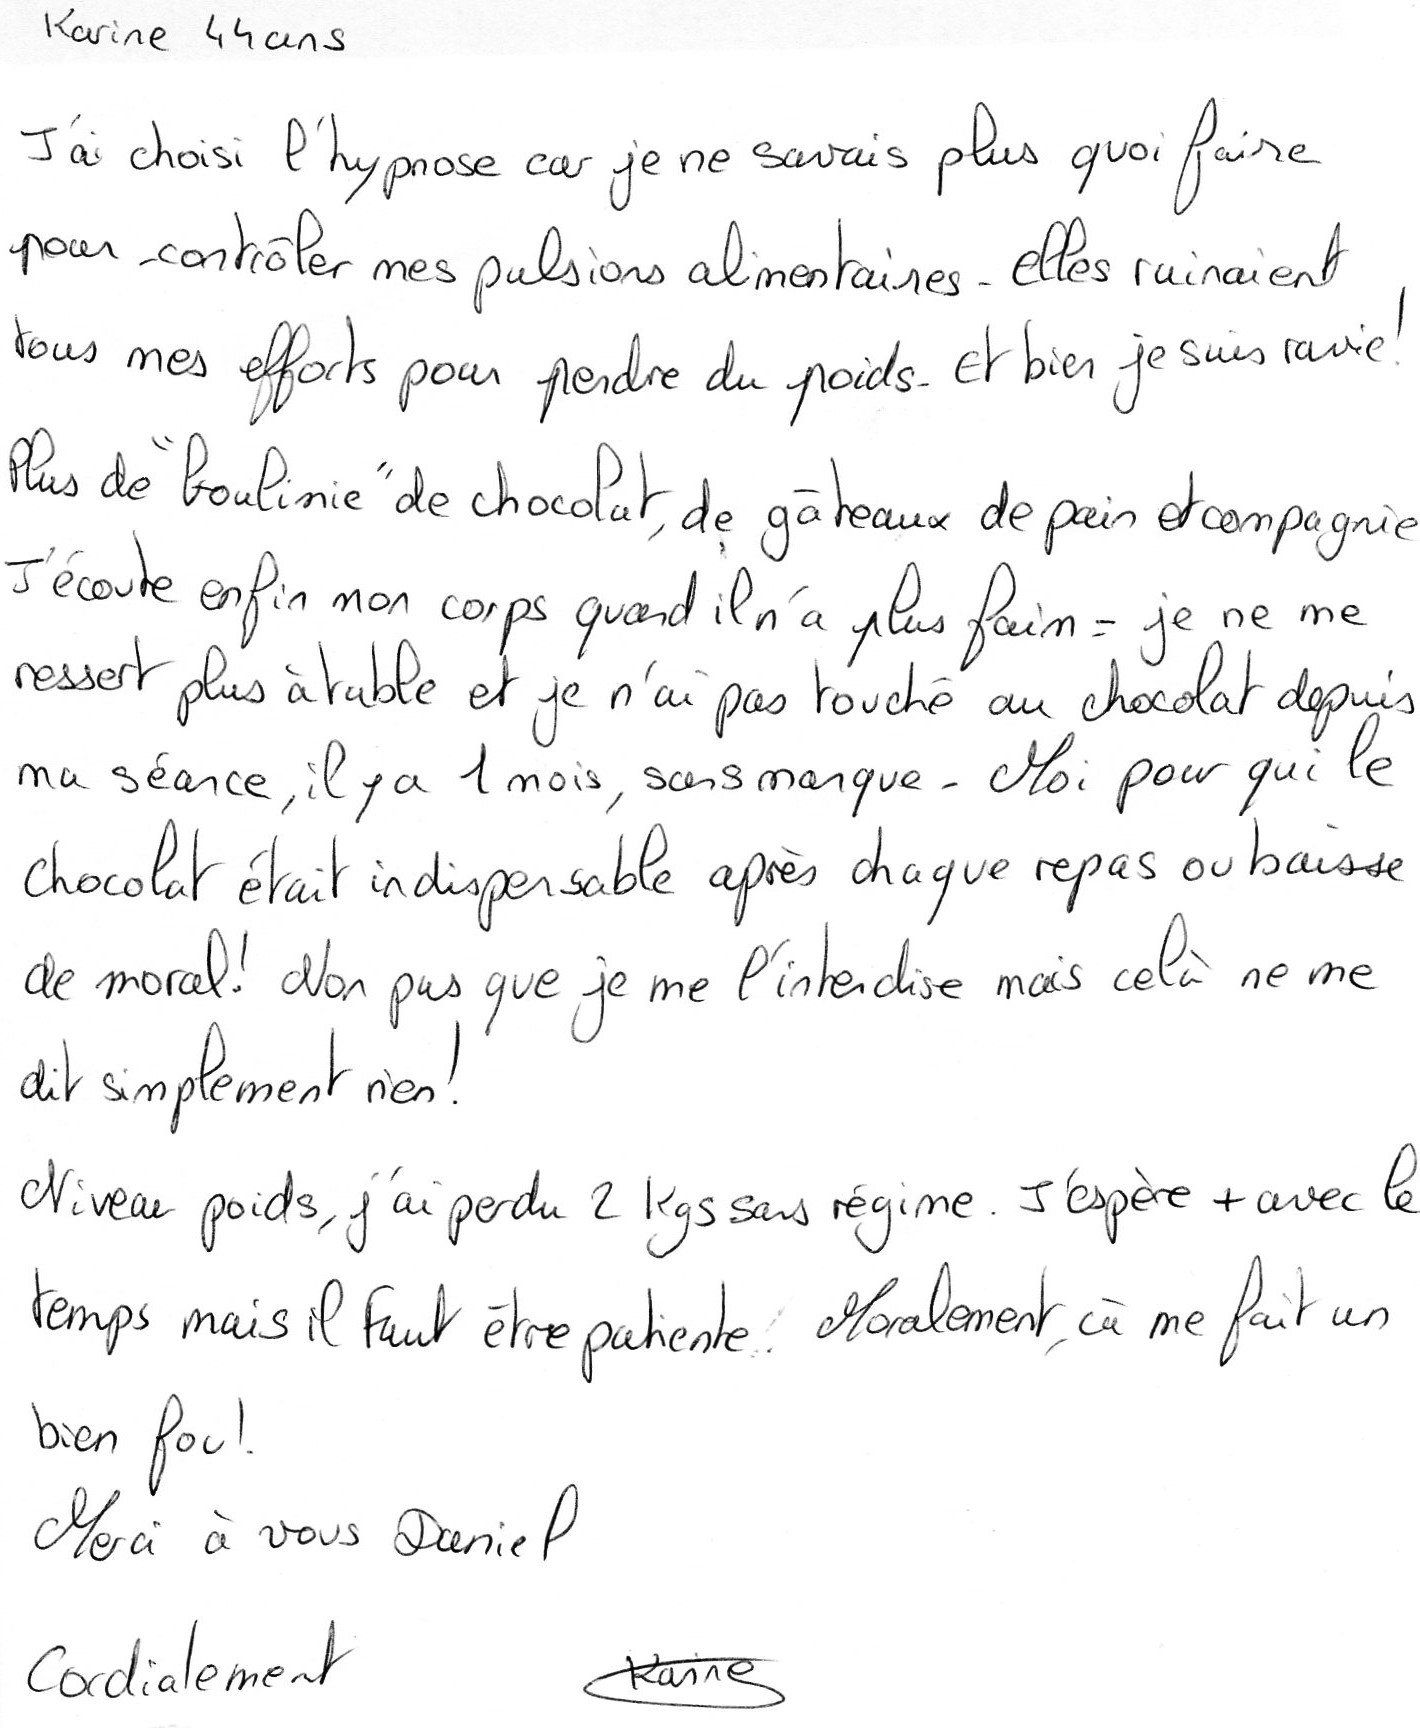 Karine 44 ans
J'ai choisi l'hypnose car je ne savais plus quoi faire
pour contrôler mes pulsions alimentaires - elles ruinaient
tous mes efforts pour perdre du poids - Et bien je suis ravie !
Plus de "boulinie" de chocolat, de gâteaux de pain et compagnie
J'écoute enfin mon corps quand il n'a plus faim = je ne me
ressert plus à table et je n'ai pas touché au chocolat depuis
ma séance, il y a 1 mois, sans manque - Moi pour qui le
chocolat était indispensable après chaque repas ou baisse
de moral ! Non pas que je me l'interdise mais celà ne me
dit simplement rien !
Niveau poids, j'ai perdu 2 kgs sans régime. J'espère + avec le
temps mais il faut être patiente ! Moralement, cà me fait un
bien fou !
Merci à vous Daniel
Cordialement Karine